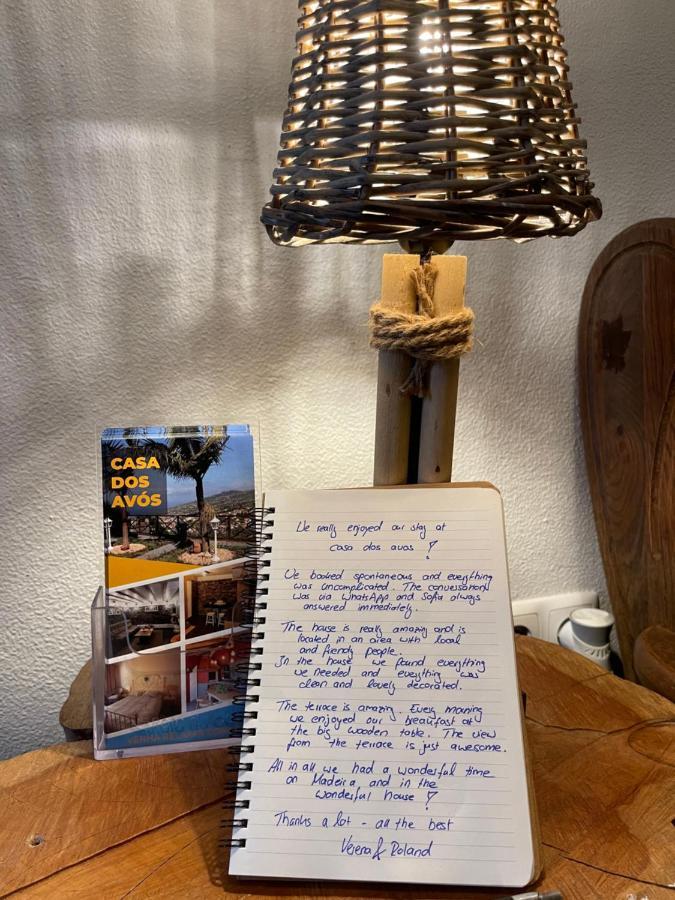 CASA
DOS
AVÓS
We really enjoyed our stay at
casa dos avas !
We booked spontaneous and everything
was uncomplicated. The conversation
was via WhatsApp and Sofia always
answered immediately.
The house is really amazing and is
located in an area with local
and friendly people.
In the house we found everything
we needed and everything was
clean and lovely decorated.
The terrace is amazing. Every morning
we enjoyed our breakfast at
the big wooden table. The view
from the terrace is just awesome.
All in all we had a wonderful time
on Madeira and in the
wonderful house !
Thanks a lot - all the best
Verena & Roland